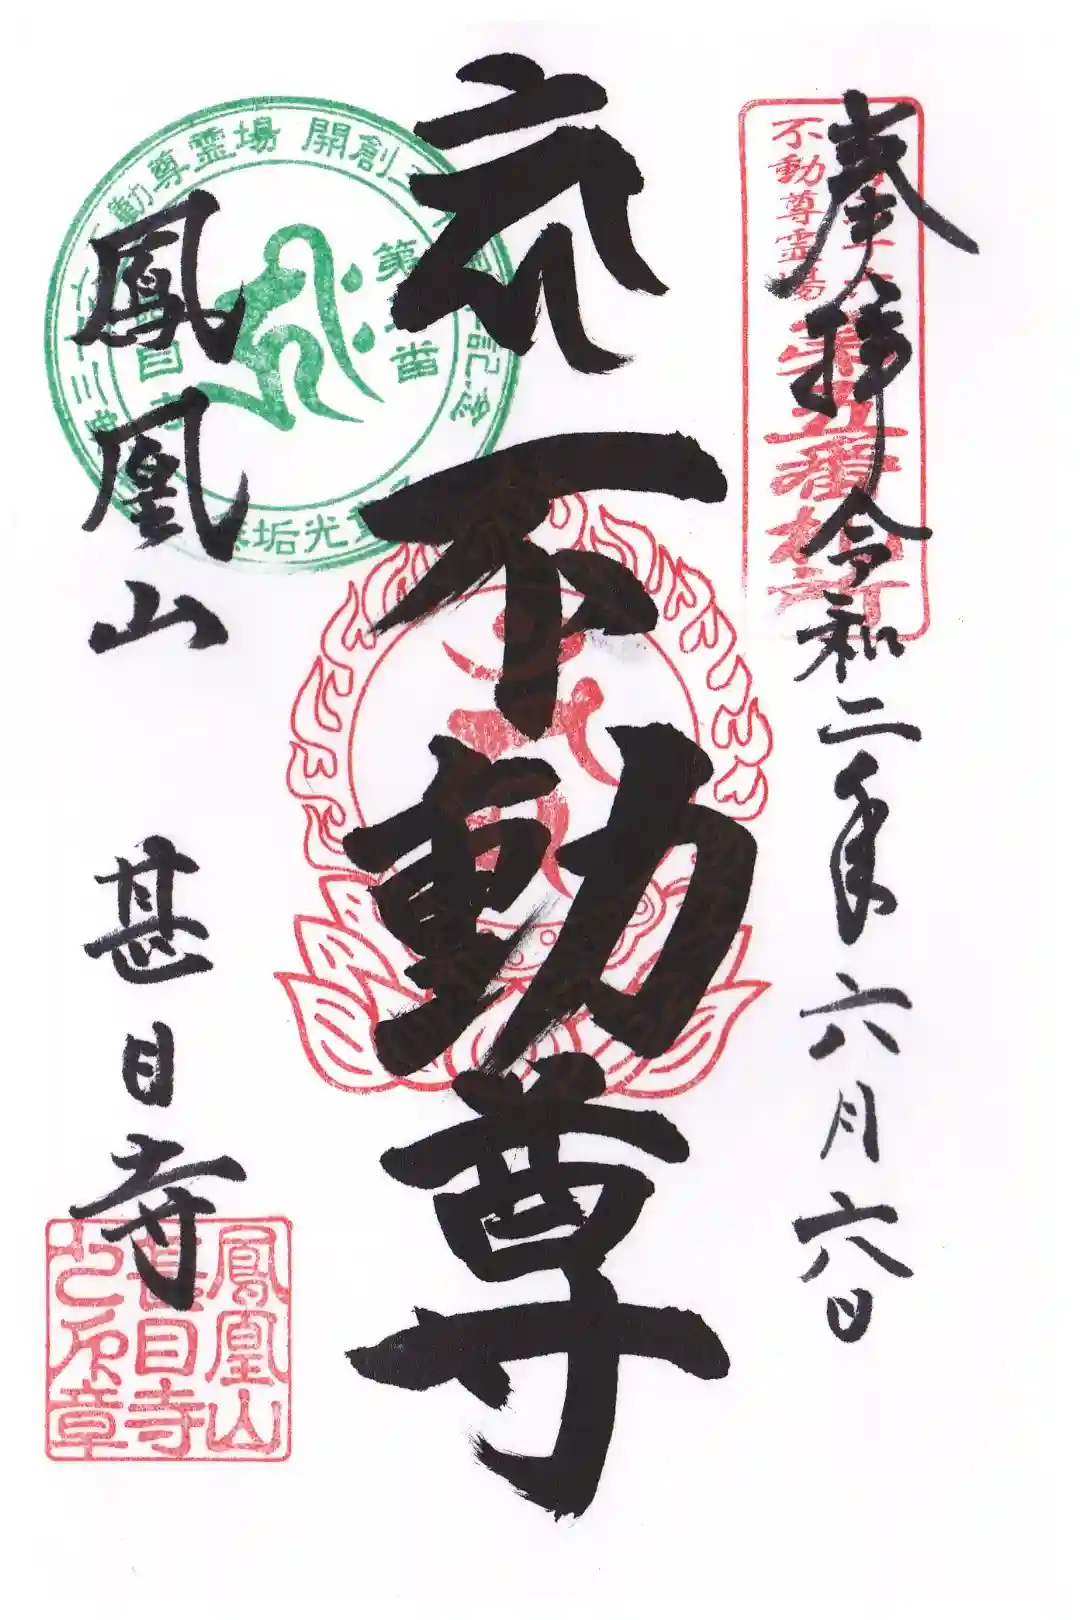 奉拝 令和二年六月六日
不動尊霊場
第五番札所
不動尊
鳳凰山 甚目寺
動尊霊場 開創
第 番
垢光
鳳凰山
甚目寺
之印章